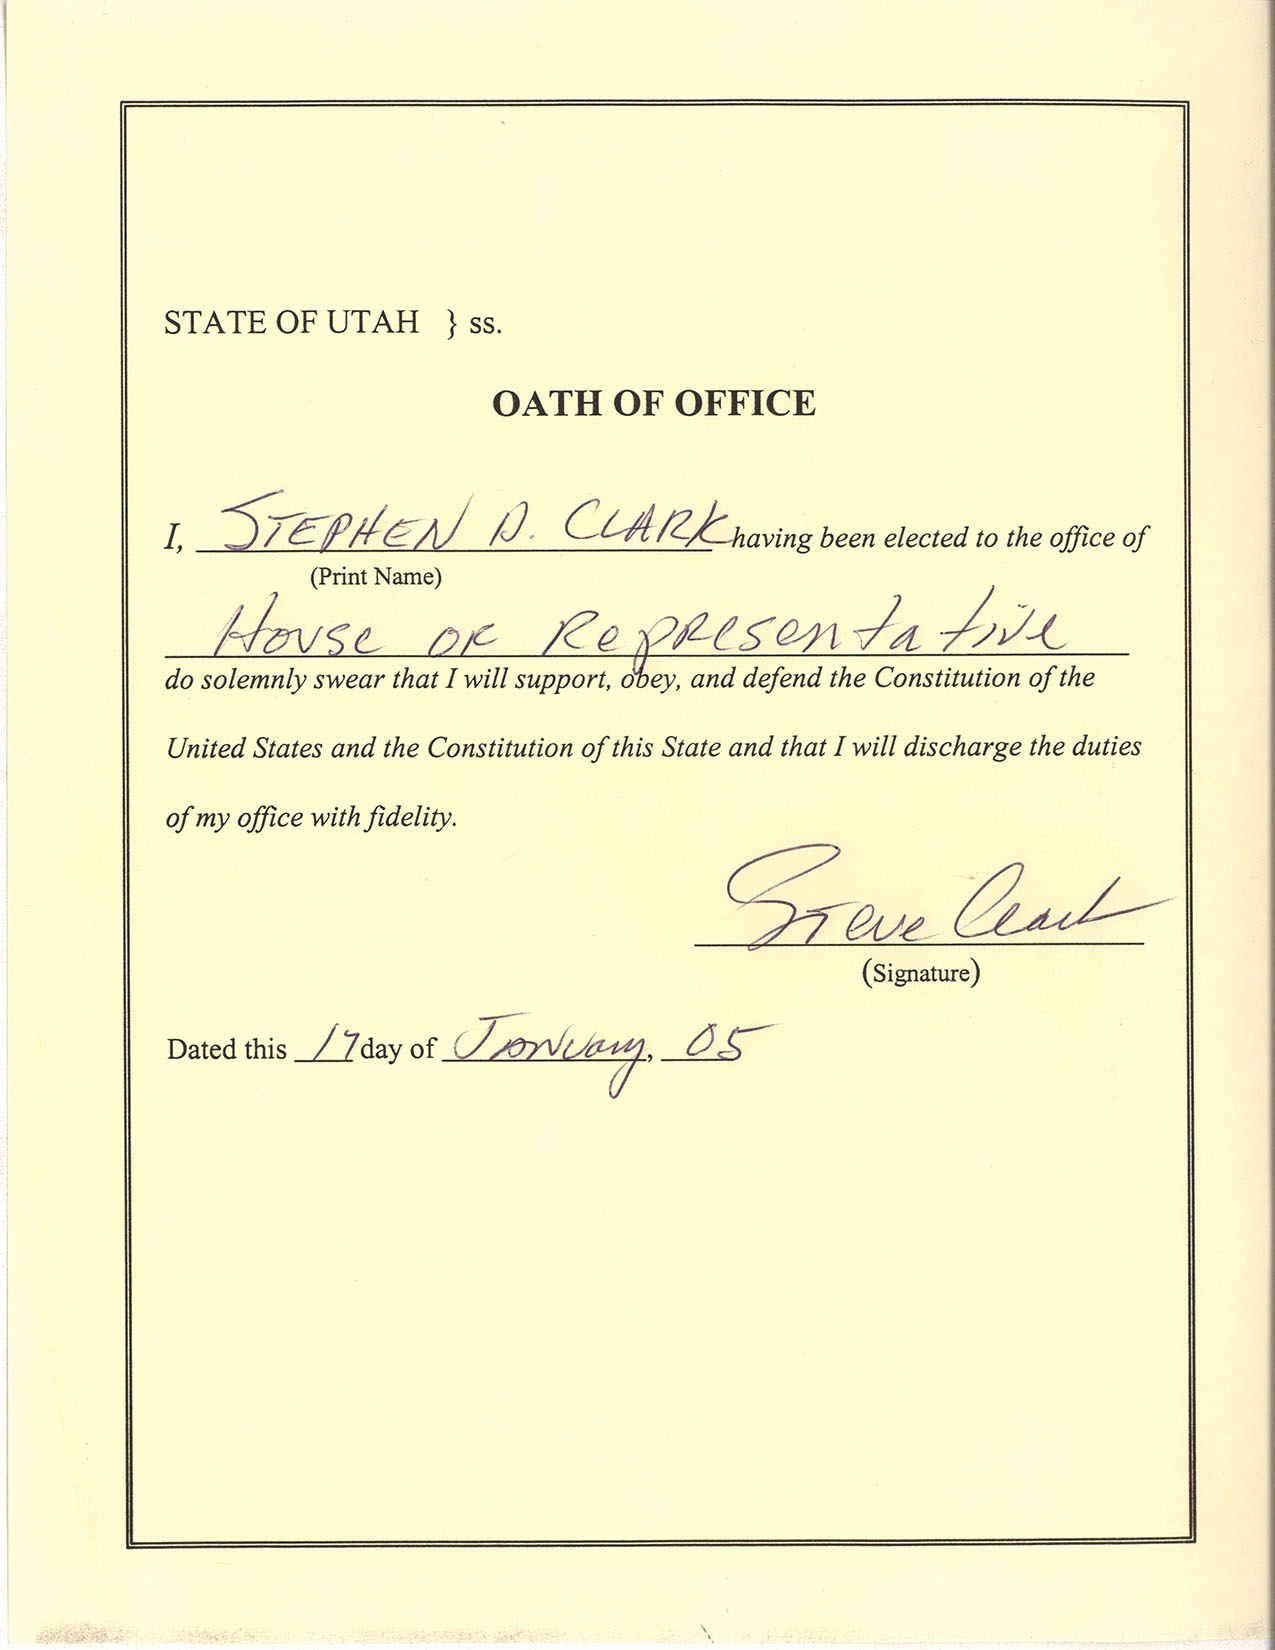 STATE OF UTAH } ss.
OATH OF OFFICE
I, STEPHEN D. CLARK having been elected to the office of
(Print Name)
House of Representative
do solemnly swear that I will support, obey, and defend the Constitution of the
United States and the Constitution of this State and that I will discharge the duties
of my office with fidelity.
Steve Clark
(Signature)
Dated this 17 day of January, 05